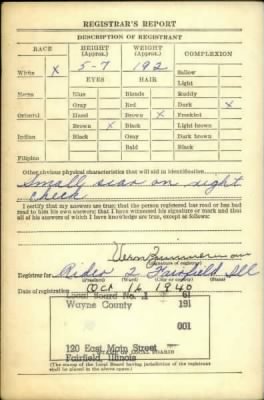 REGISTRAR'S REPORT
DESCRIPTION OF REGISTRANT
RACE HEIGHT (Approx.) WEIGHT (Approx.) COMPLEXION
White X 5-7 192 Sallow
EYES HAIR Light
Negro Blue Blonde Ruddy
Gray Red Dark X
Oriental Hazel Brown X Freckled
Brown X Black Light brown
Indian Black Gray Dark brown
Bald Black
Filipino
Other obvious physical characteristics that will aid in identification
Small scar on right
cheek
I certify that my answers are true; that the person registered has read or has had
read to him his own answers; that I have witnessed his signature or mark and that
all of his answers of which I have knowledge are true, except as follows:
Vern Zimmerman
(Signature of registrar)
Registrar for 2 Fairfield Ill
Date of registration Oct 16 1940
Local Board No. 1 61
Wayne County 191
001
120 East Main Street
Fairfield, Illinois
(The stamp of the Local Board having jurisdiction of the registrant
shall be placed in the above space.)